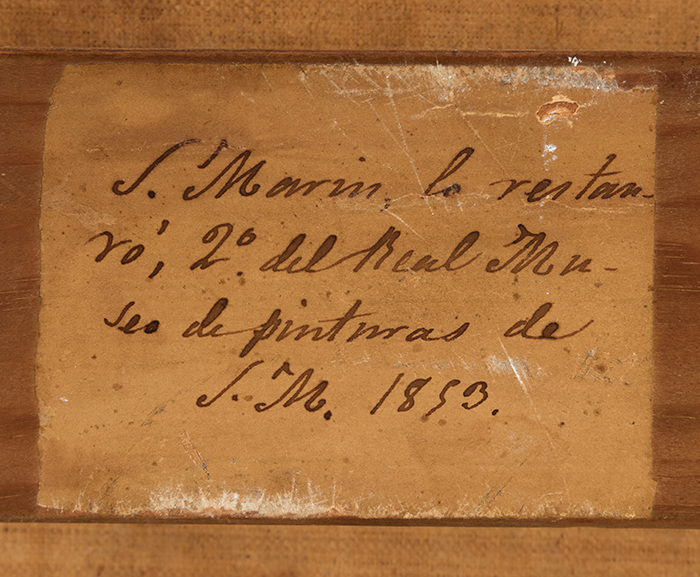 S. Marin, lo restau-
ró, 2º. del Real Mu-
seo de pinturas de
S. M. 1853.